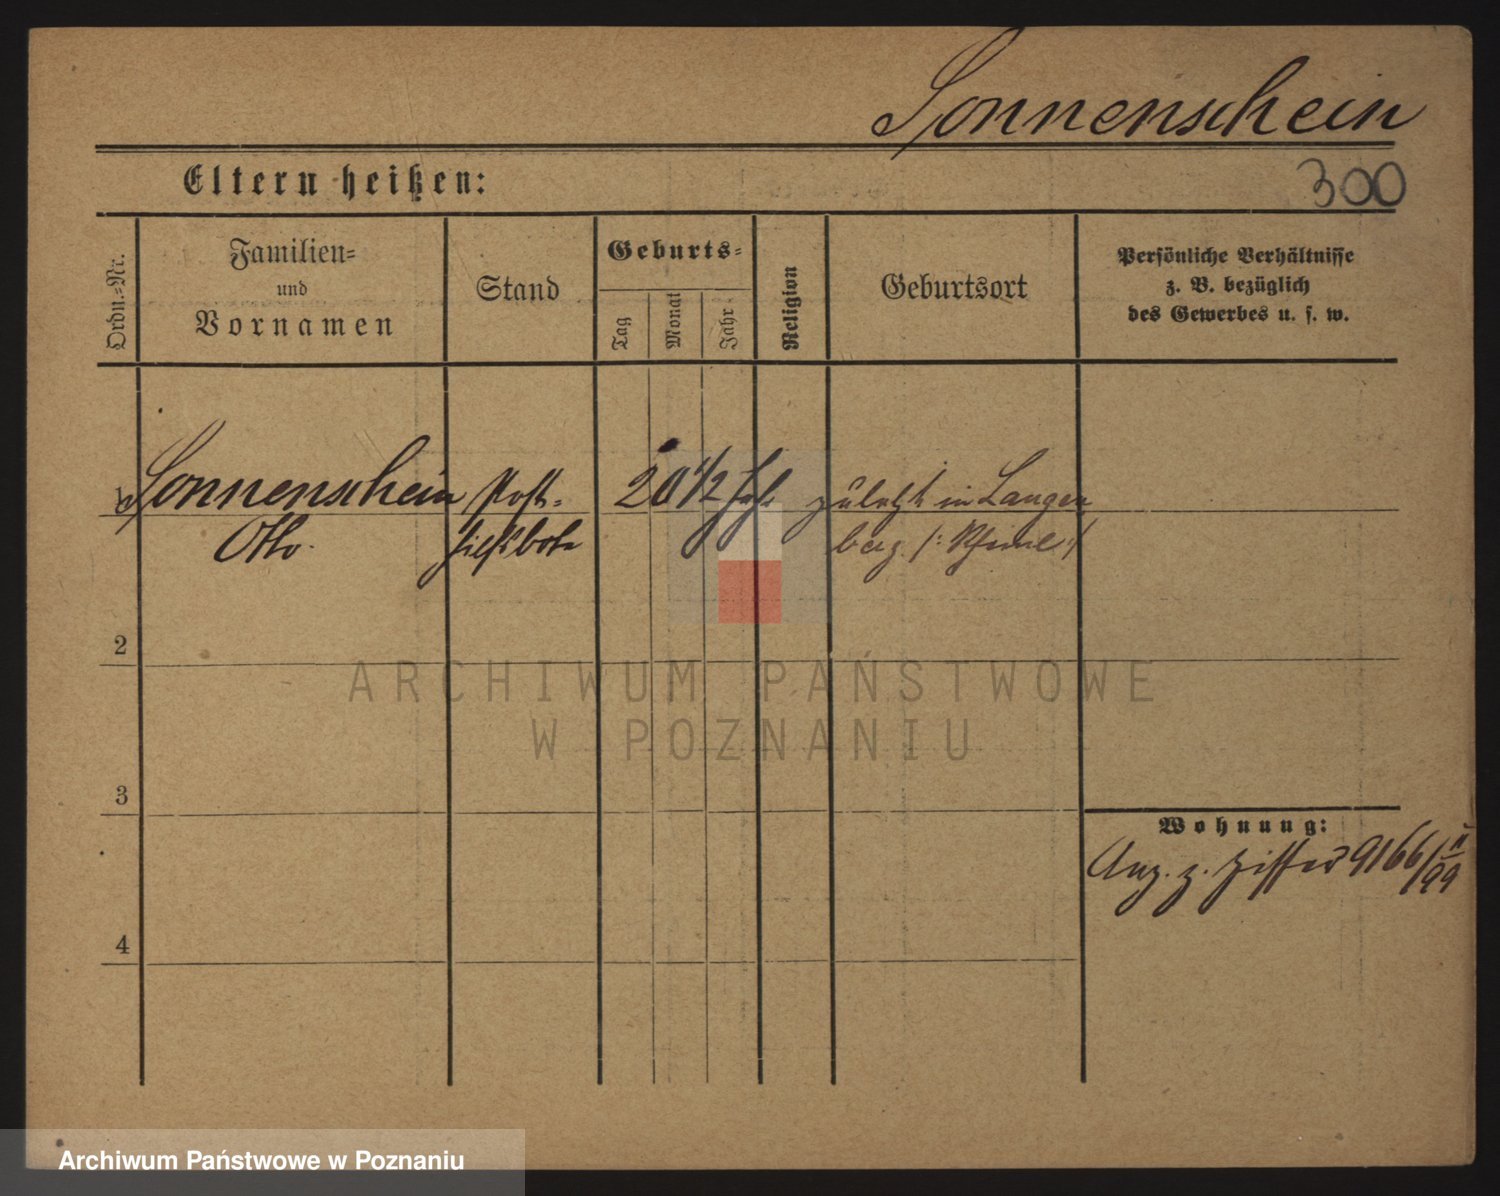 Sonnenschein
Eltern heißen:
300
Ordn.-Nr.
Familien-
und
Vornamen
Stand
Geburts-
Tag
Monat
Jahr
Religion
Geburtsort
Persönliche Verhältnisse
z. B. bezüglich
des Gewerbes u. s. w.
1
Sonnenschein
Otto.
Post-
hilfsbote
20 1/2 Jahr
zuletzt in Langen
berg /: Rheinl :/
2
3
4
Wohnung:
Anz. z. Ziffer 9166/II 99
ARCHIWUM PAŃSTWOWE
W POZNANIU
Archiwum Państwowe w Poznaniu